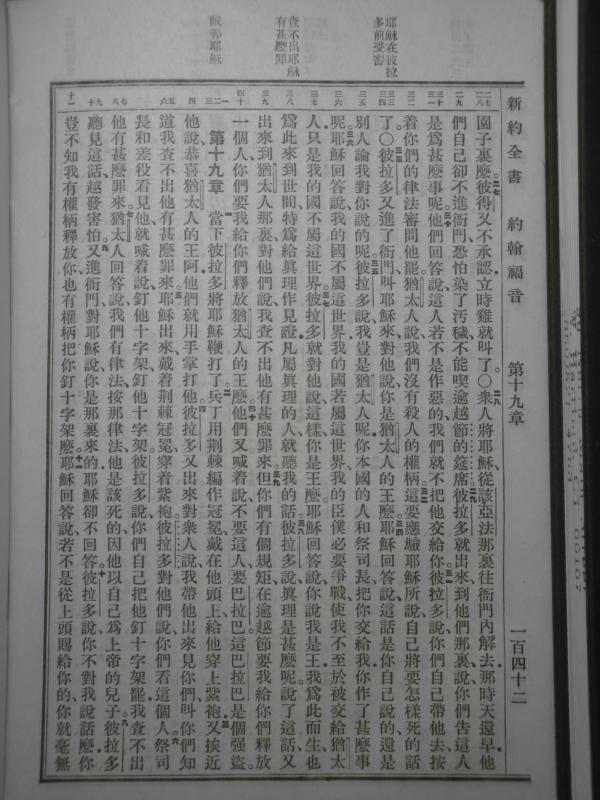 新約全書　約翰福音　第十九章　一百四十二
耶穌在彼拉
多前受審
查不出耶穌
有甚麽罪
戲弄耶穌
園子裏麽彼得又不承認立時雞就叫了○衆人將耶穌從該亞法那裏往衙門內解去那時天還早他
們自己卻不進衙門恐怕染了汚穢不能喫逾越節的筵席彼拉多就出來到他們那裏說你們告這人
是爲甚麽事呢他們回答說這人若不是作惡的我們就不把他交給你彼拉多說你們自己帶他去按
着你們的律法審問他罷猶太人說我們沒有殺人的權柄這要應驗耶穌所說自己將要怎樣死的話
了○彼拉多又進了衙門叫耶穌來對他說你是猶太人的王麽耶穌回答說這話是你自己說的還是
別人論我對你說的呢彼拉多說我豈是猶太人呢你本國的人和祭司長把你交給我你作了甚麽事
呢耶穌回答說我的國不屬這世界我的國若屬這世界我的臣僕必要爭戰使我不至於被交給猶太
人只是我的國不屬這世界彼拉多就對他說這樣你是王麽耶穌回答說你說我是王我爲此而生也
爲此來到世間特爲給眞理作見證凡屬眞理的人就聽我的話彼拉多說眞理是甚麽呢說了這話又
出來到猶太人那裏對他們說我查不出他有甚麽罪來但你們有個規矩在逾越節要我給你們釋放
一個人你們要我給你們釋放猶太人的王麽他們又喊着說不要這人要巴拉巴這巴拉巴是個强盜
第十九章　當下彼拉多將耶穌鞭打了兵丁用荆棘編作冠冕戴在他頭上給他穿上紫袍又挨近
他說恭喜猶太人的王阿他們就用手掌打他彼拉多又出來對衆人說我帶他出來見你們叫你們知
道我查不出他有甚麽罪來耶穌出來戴着荆棘冠冕穿着紫袍彼拉多對他們說你們看這個人祭司
長和差役看見他就喊着說釘他十字架釘他十字架彼拉多說你們自己把他釘十字架罷我查不出
他有甚麽罪來猶太人回答說我們有律法按那律法他是該死的因他以自己爲上帝的兒子彼拉多
聽見這話越發害怕又進衙門對耶穌說你是那裏來的耶穌卻不回答彼拉多說你不對我說話麽你
豈不知我有權柄釋放你也有權柄把你釘十字架麽耶穌回答說若不是從上頭賜給你的你就毫無